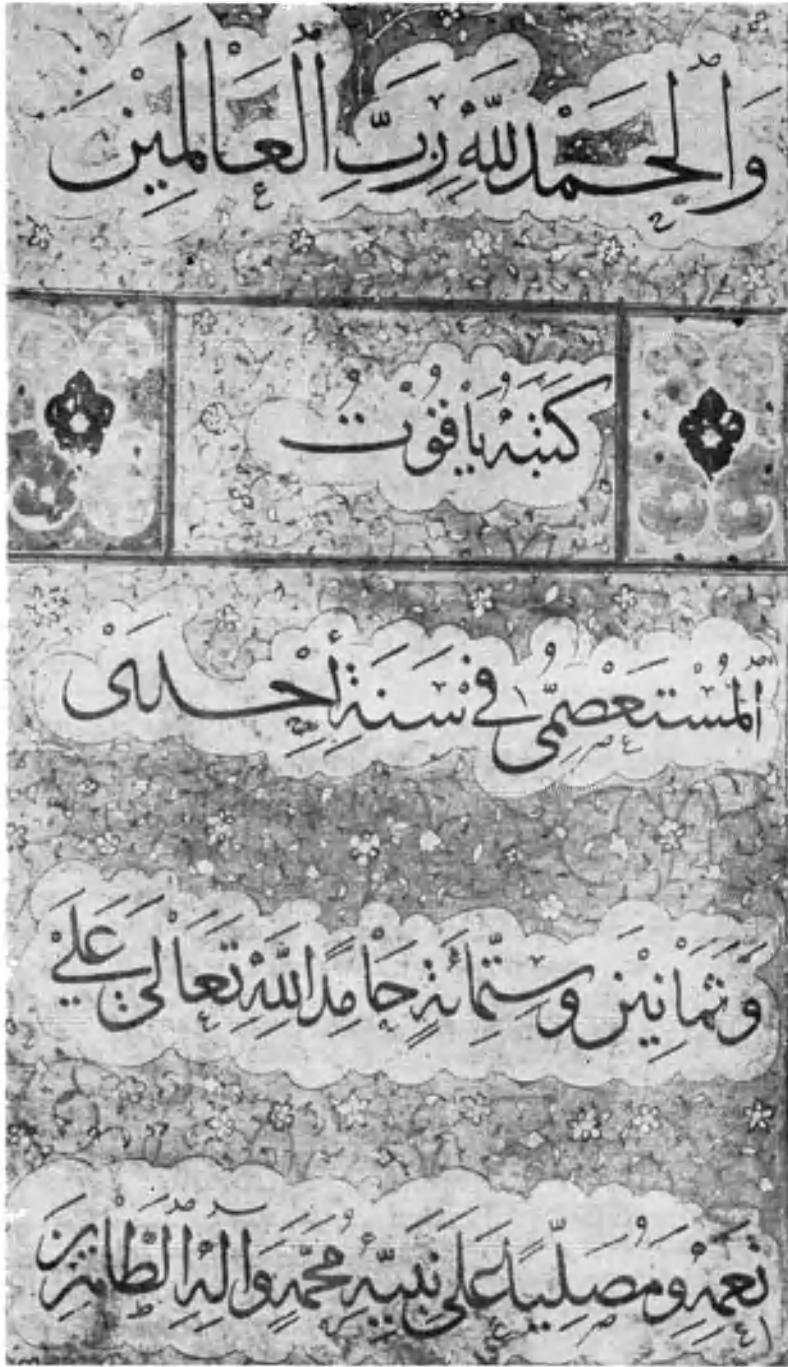 وَالْحَمْدُ لِلّٰهِ رَبِّ الْعَالَمِيْنَ
كَتَبَهُ يَاقُوْتُ
الْمُسْتَعْصِمِيُّ فِي سَنَةِ إِحْدَىٰ
وَثَمَانِيْنَ وَسِتِّمِائَةٍ حَامِدًا لِلّٰهِ تَعَالَىٰ عَلَىٰ
نِعَمِهِ وَمُصَلِّيًا عَلَىٰ نَبِيِّهِ مُحَمَّدٍ وَآلِهِ الطَّاهِرِيْنَ